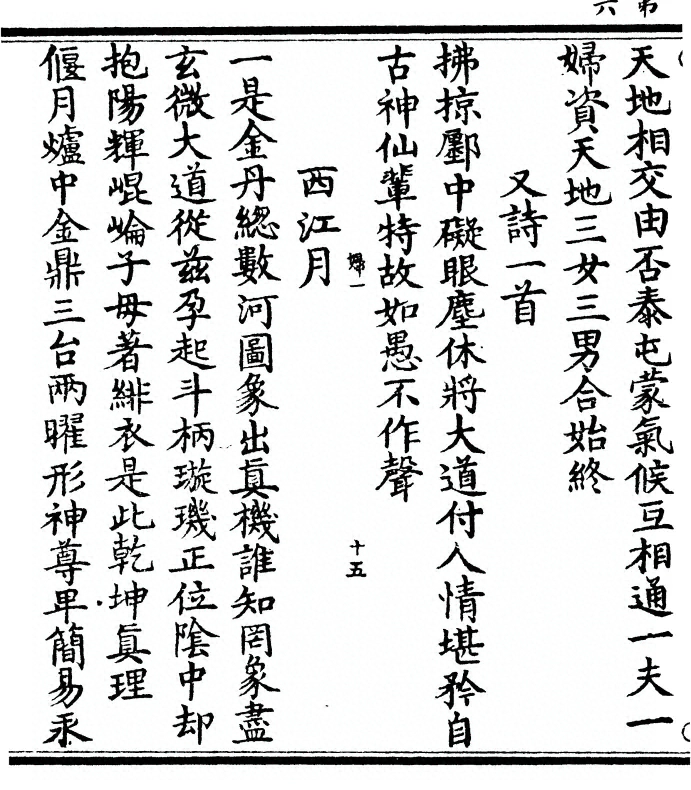 第六
天地相交由否泰屯蒙氣候互相通一夫一
婦資天地三女三男合始終
又詩一首
拂掠鄽中礙眼塵休將大道付人情堪矜自
古神仙輩特故如愚不作聲
婦一
十五
西江月
一是金丹緫數河圖象出眞機誰知罔象盡
玄微大道從兹孕起斗柄璇璣正位陰中却
抱陽輝崐崘子母著緋衣是此乾坤眞理
偃月爐中金鼎三台兩曜形神尊卑簡易永